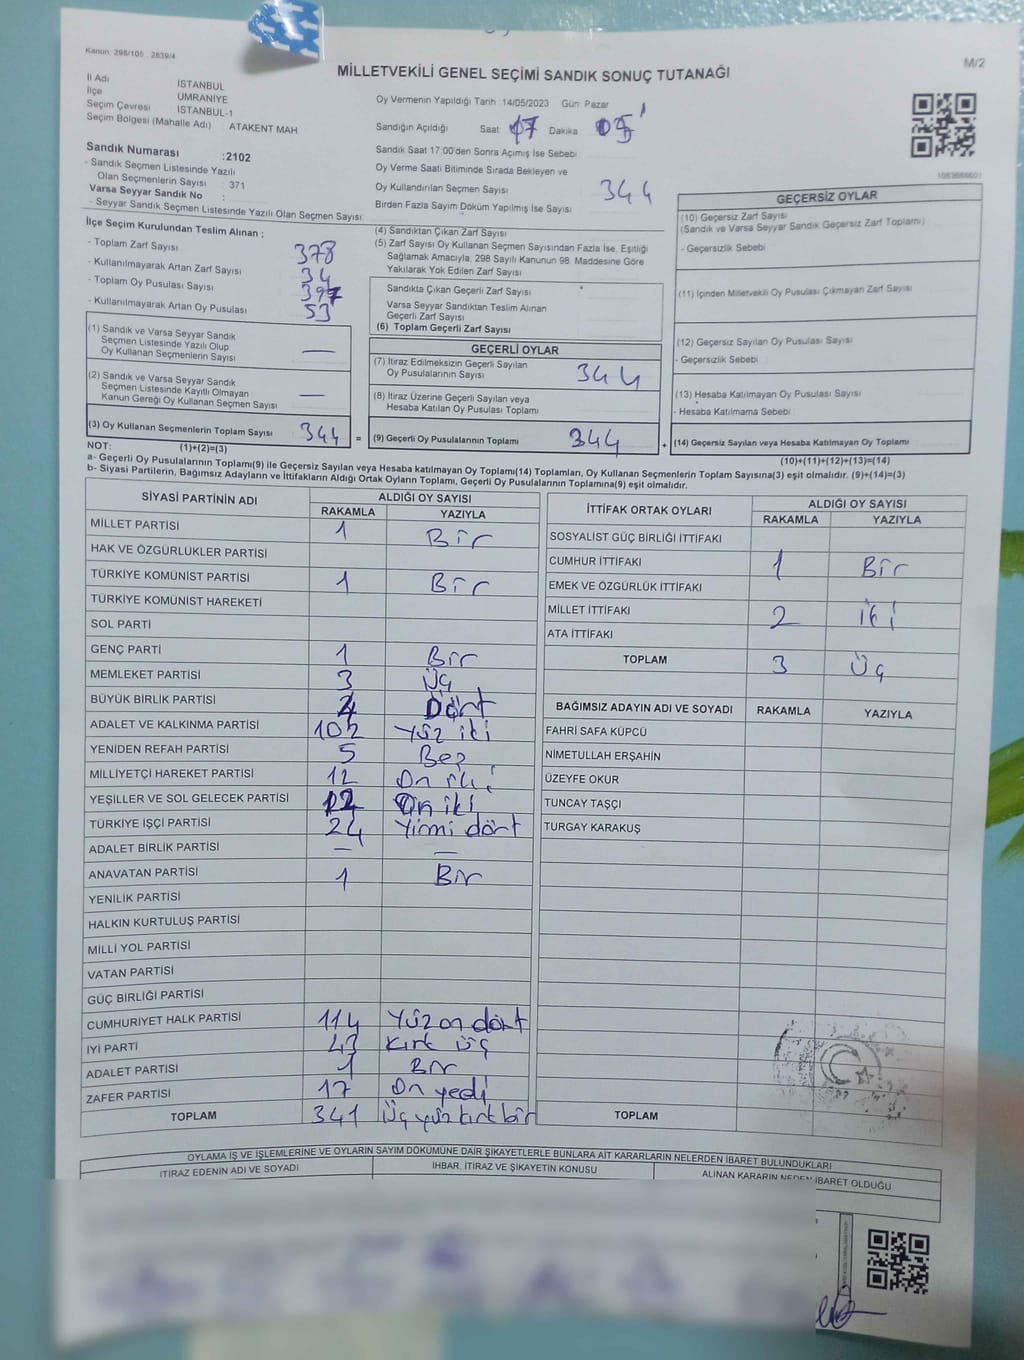 Kanun: 298/105 . 2839/4
M/2
MİLLETVEKİLİ GENEL SEÇİMİ SANDIK SONUÇ TUTANAĞI
İl Adı İSTANBUL
İlçe ÜMRANİYE
Seçim Çevresi İSTANBUL-1
Seçim Bölgesi (Mahalle Adı) ATAKENT MAH
Sandık Numarası :2102
- Sandık Seçmen Listesinde Yazılı
Olan Seçmenlerin Sayısı : 371
Varsa Seyyar Sandık No :
- Seyyar Sandık Seçmen Listesinde Yazılı Olan Seçmen Sayısı:
Oy Vermenin Yapıldığı Tarih :14/05/2023 Gün: Pazar
Sandığın Açıldığı Saat: 17 Dakika 05
Sandık Saat 17.00'den Sonra Açımış İse Sebebi :
Oy Verme Saati Bitiminde Sırada Bekleyen ve
Oy Kullandırılan Seçmen Sayısı 344
Birden Fazla Sayım Döküm Yapılmış İse Sayısı
1083666601
İlçe Seçim Kurulundan Teslim Alınan ;
- Toplam Zarf Sayısı 378
- Kullanılmayarak Artan Zarf Sayısı 34
- Toplam Oy Pusulası Sayısı 397
- Kullanılmayarak Artan Oy Pusulası 53
(1) Sandık ve Varsa Seyyar Sandık
Seçmen Listesinde Yazılı Olup
Oy Kullanan Seçmenlerin Sayısı —
(2) Sandık ve Varsa Seyyar Sandık
Seçmen Listesinde Kayıtlı Olmayan
Kanun Gereği Oy Kullanan Seçmen Sayısı —
(3) Oy Kullanan Seçmenlerin Toplam Sayısı 344 =
(4) Sandıktan Çıkan Zarf Sayısı
(5) Zarf Sayısı Oy Kullanan Seçmen Sayısından Fazla İse, Eşitliği
Sağlamak Amacıyla, 298 Sayılı Kanunun 98. Maddesine Göre
Yakılarak Yok Edilen Zarf Sayısı
Sandıkta Çıkan Geçerli Zarf Sayısı
Varsa Seyyar Sandıktan Teslim Alınan
Geçerli Zarf Sayısı
(6) Toplam Geçerli Zarf Sayısı
GEÇERLİ OYLAR
(7) İtiraz Edilmeksizin Geçerli Sayılan
Oy Pusulalarının Sayısı 344
(8) İtiraz Üzerine Geçerli Sayılan veya
Hesaba Katılan Oy Pusulası Toplamı
(9) Geçerli Oy Pusulalarının Toplamı 344 +
GEÇERSİZ OYLAR
(10) Geçersiz Zarf Sayısı
(Sandık ve Varsa Seyyar Sandık Geçersiz Zarf Toplamı)
- Geçersizlik Sebebi
(11) İçinden Milletvekili Oy Pusulası Çıkmayan Zarf Sayısı
(12) Geçersiz Sayılan Oy Pusulası Sayısı
- Geçersizlik Sebebi
(13) Hesaba Katılmayan Oy Pusulası Sayısı
- Hesaba Katılmama Sebebi :
(14) Geçersiz Sayılan veya Hesaba Katılmayan Oy Toplamı
NOT: (1)+(2)=(3)
(10)+(11)+(12)+(13)=(14)
a- Geçerli Oy Pusulalarının Toplamı(9) ile Geçersiz Sayılan veya Hesaba katılmayan Oy Toplamı(14) Toplamları, Oy Kullanan Seçmenlerin Toplam Sayısına(3) eşit olmalıdır. (9)+(14)=(3)
b- Siyasi Partilerin, Bağımsız Adayların ve İttifakların Aldığı Ortak Oyların Toplamı, Geçerli Oy Pusulalarının Toplamına(9) eşit olmalıdır.
SİYASİ PARTİNİN ADI ALDIĞI OY SAYISI
RAKAMLA YAZIYLA
MİLLET PARTİSİ 1 Bir
HAK VE ÖZGÜRLÜKLER PARTİSİ
TÜRKİYE KOMÜNİST PARTİSİ 1 Bir
TÜRKİYE KOMÜNİST HAREKETİ
SOL PARTİ
GENÇ PARTİ 1 Bir
MEMLEKET PARTİSİ 3 Üç
BÜYÜK BİRLİK PARTİSİ 4 Dört
ADALET VE KALKINMA PARTİSİ 102 Yüz iki
YENİDEN REFAH PARTİSİ 5 Beş
MİLLİYETÇİ HAREKET PARTİSİ 12 On iki
YEŞİLLER VE SOL GELECEK PARTİSİ 12 On iki
TÜRKİYE İŞÇİ PARTİSİ 24 Yirmi dört
ADALET BİRLİK PARTİSİ — —
ANAVATAN PARTİSİ 1 Bir
YENİLİK PARTİSİ
HALKIN KURTULUŞ PARTİSİ
MİLLİ YOL PARTİSİ
VATAN PARTİSİ
GÜÇ BİRLİĞİ PARTİSİ
CUMHURİYET HALK PARTİSİ 114 Yüz on dört
İYİ PARTİ 43 Kırk üç
ADALET PARTİSİ 1 Bir
ZAFER PARTİSİ 17 On yedi
TOPLAM 341 Üç yüz kırk bir
İTTİFAK ORTAK OYLARI ALDIĞI OY SAYISI
RAKAMLA YAZIYLA
SOSYALİST GÜÇ BİRLİĞİ İTTİFAKI
CUMHUR İTTİFAKI 1 Bir
EMEK VE ÖZGÜRLÜK İTTİFAKI
MİLLET İTTİFAKI 2 İki
ATA İTTİFAKI
TOPLAM 3 Üç
BAĞIMSIZ ADAYIN ADI VE SOYADI RAKAMLA YAZIYLA
FAHRİ SAFA KÜPCÜ
NİMETULLAH ERŞAHİN
ÜZEYFE OKUR
TUNCAY TAŞÇI
TURGAY KARAKUŞ
TOPLAM
OYLAMA İŞ VE İŞLEMLERİNE VE OYLARIN SAYIM DÖKÜMÜNE DAİR ŞİKAYETLERLE BUNLARA AİT KARARLARIN NELERDEN İBARET BULUNDUKLARI
İTİRAZ EDENİN ADI VE SOYADI İHBAR, İTİRAZ VE ŞİKAYETİN KONUSU ALINAN KARARIN NEDEN İBARET OLDUĞU